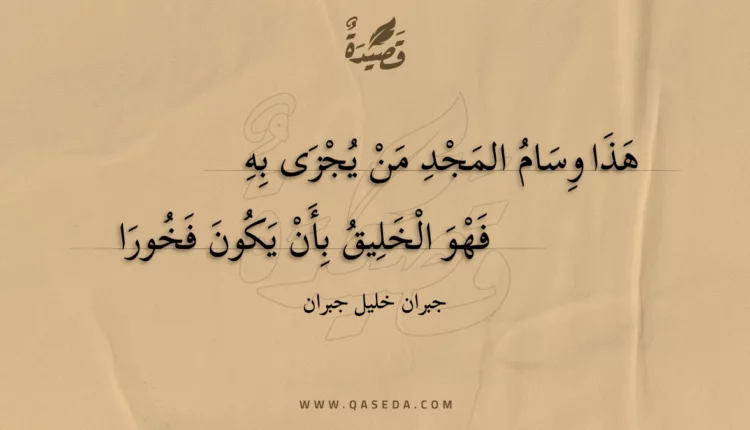 قَصِيدَةٌ
هَذَا وِسَامُ المَجْدِ مَنْ يُجْزَى بِهِ
فَهْوَ الْخَلِيقُ بِأَنْ يَكُونَ فَخُورَا
جبران خليل جبران
WWW.QASEDA.COM